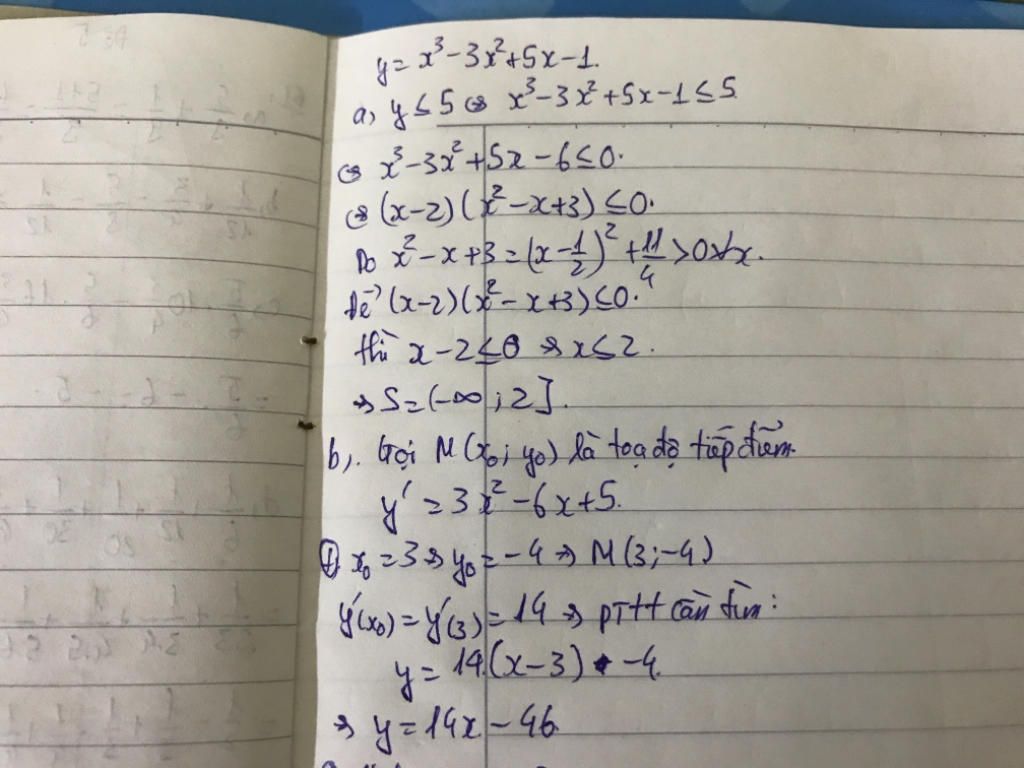 y = x³ - 3x² + 5x - 1.
a, y ≤ 5 ⇔ x³ - 3x² + 5x - 1 ≤ 5
⇔ x³ - 3x² + 5x - 6 ≤ 0.
⇔ (x-2)(x² - x + 3) ≤ 0.
Do x² - x + 3 = (x - 1/2)² + 11/4 > 0 ∀x.
Để (x-2)(x² - x + 3) ≤ 0.
thì x - 2 ≤ 0 ⇒ x ≤ 2.
⇒ S = (-∞; 2].
b,. Gọi M(x₀; y₀) là toạ độ tiếp điểm.
y' = 3x² - 6x + 5.
⊕ x₀ = 3 ⇒ y₀ = -4 ⇒ M(3; -4)
y'(x₀) = y'(3) = 14 ⇒ PTtt cần tìm:
y = 14.(x-3) -4.
⇒ y = 14x - 46.